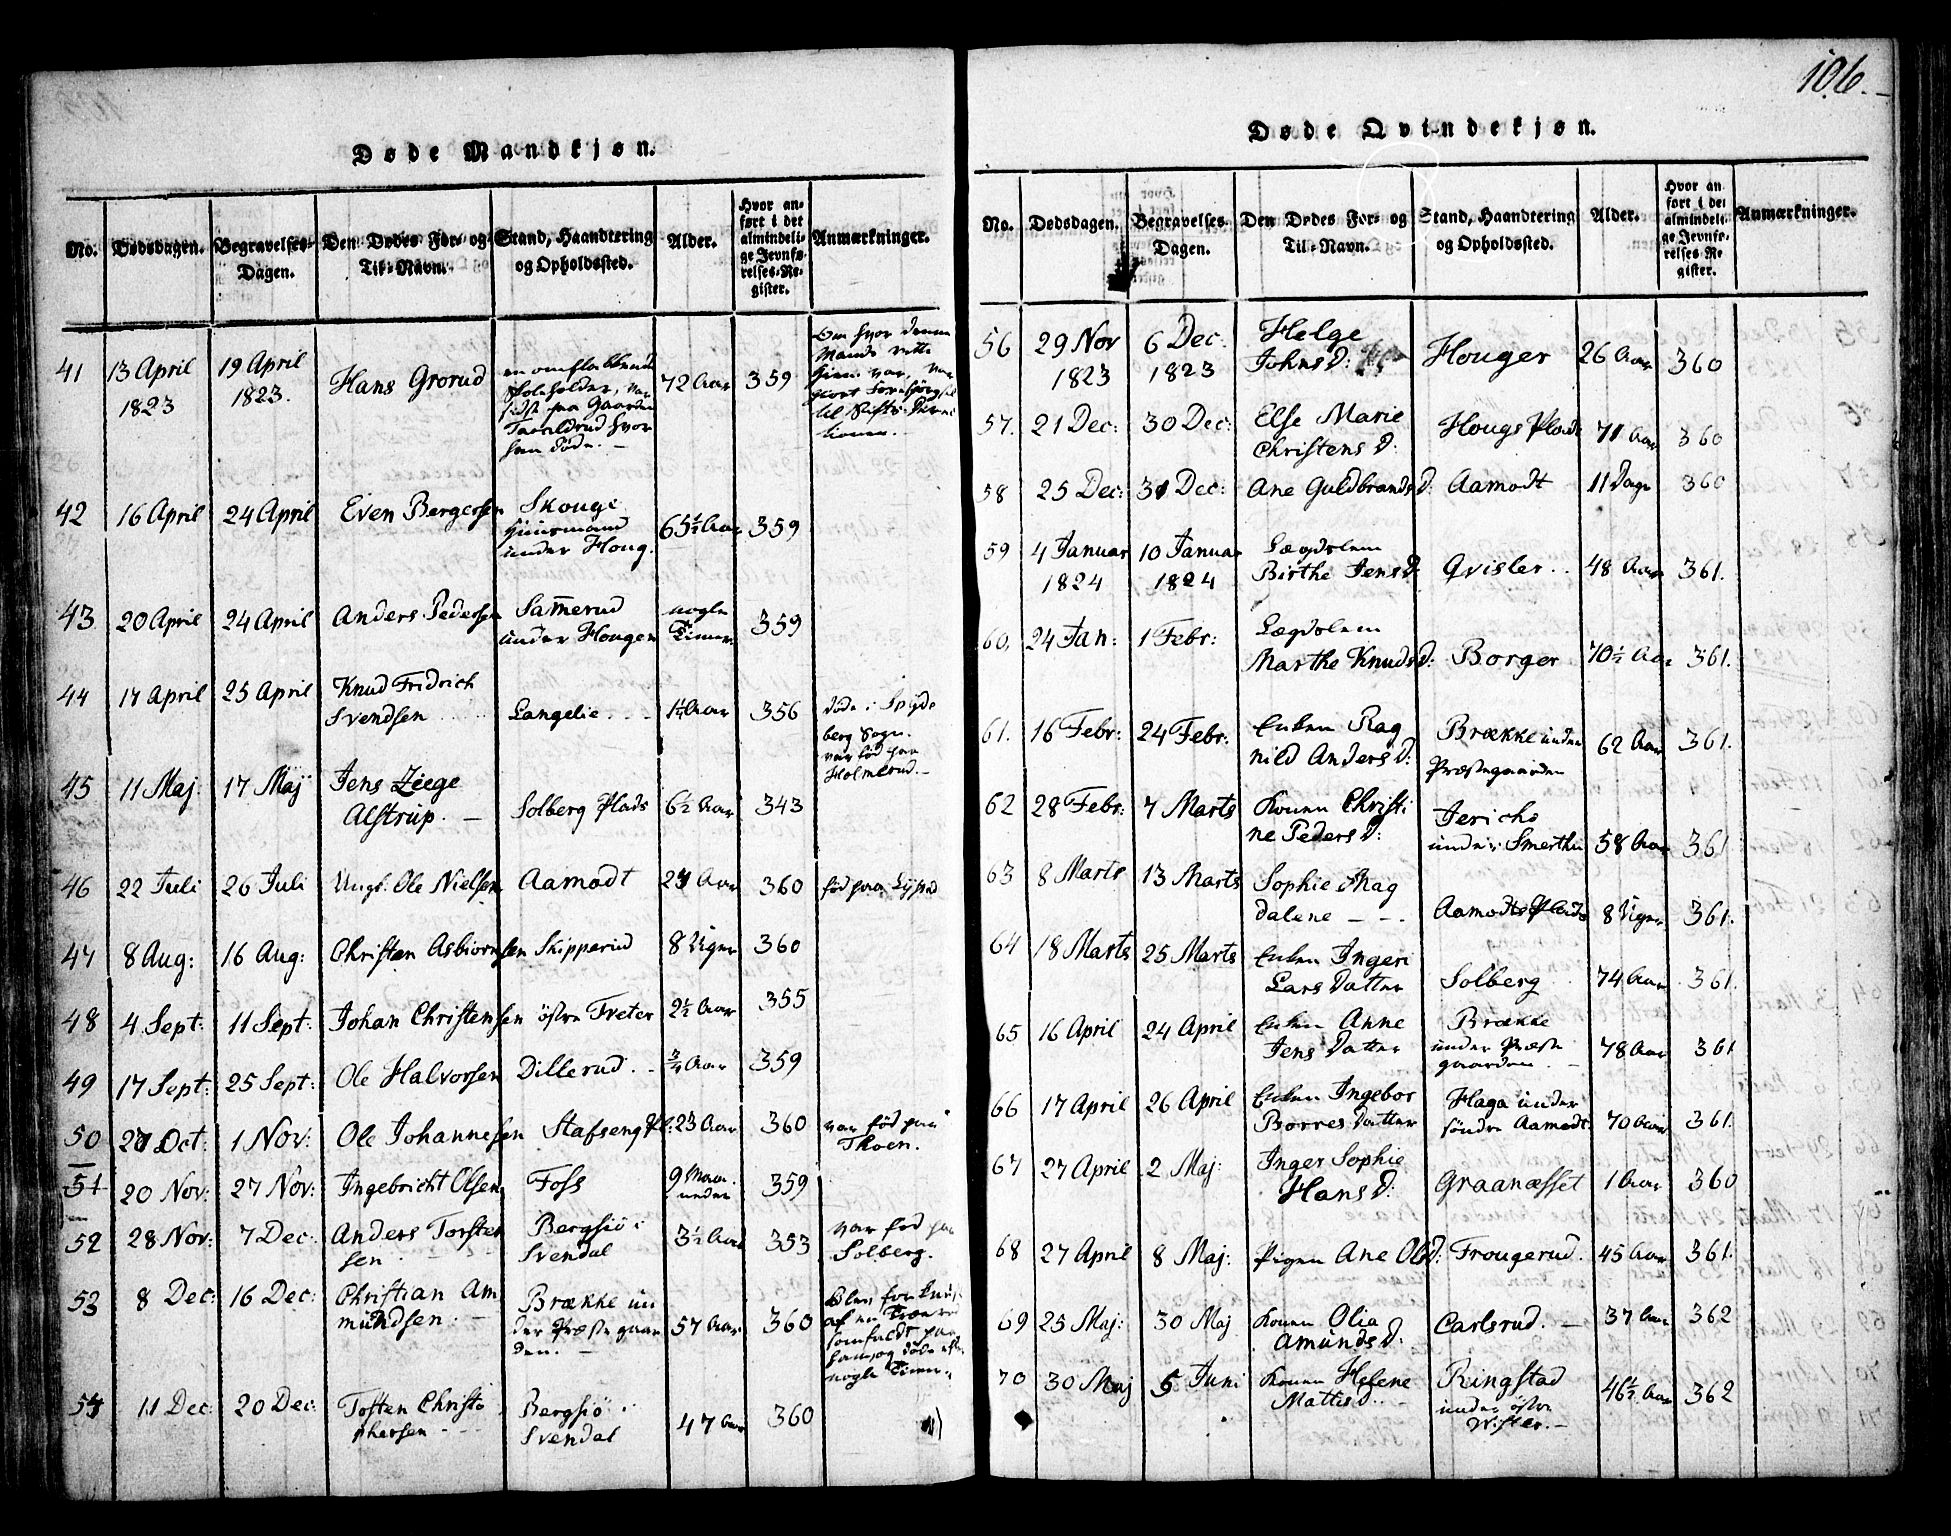 106.
Døde Mandkjøn.
No. Dødsdagen. Begravelses-Dagen. Den Dødes For- og Til-Navn. Stand, Haandtering og Opholdssted. Alder. Hvor anført i det almindelige Jevnførelses-Register. Anmærkninger.
41 13 April 1823 19 April 1823. Hans Grorud 72 Aar 359
42 16 April 24 April Even Bergersen Skouge Huusmand under Houg. 65½ Aar 359
43 20 April 24 April Anders Pedersen Sam̅erud under Hougen nogle Timer 359
44 17 April 25 April Knud Fridrich Svendsen Langelie 1¼ Aar 356 døde i Spydeberg Sogn. var fød paa Holmerud.
45 11 Maj 17 Maj Jens Zeege Alstrup. Solberg Plads 6½ Aar 343
46 22 Juli 26 Juli Ungk. Ole Nielsen Aamodt Aar 360 fød paa
47 8 Aug: 16 Aug: Christen Asbiørnsen Skipperud 8 Uger 360
48 4 Sept: 11 Sept: Johan Christensen østre Treter 2½ Aar 355
49 17 Sept: 25 Sept: Ole Halvorsen Dillerud. ¾ Aar 359
50 Oct. 1 Nov: Ole Johannesen Stafseng Pl: 23 Aar 360 var fød paa Thoen.
51 20 Nov: 27 Nov: Ingebricht Olsen Foss 9 Maaneder 359
52 28 Nov: 7 Dec: Anders Torstensen Bergsiø i Svendal 3½ Aar 353 var fød paa Solberg.
53 8 Dec: 16 Dec: Christian Amundsen. Brække under Præstegaarden. 57 Aar 360 Blev af som faldt paa ham, og døde efter nogle Timer.
54 11 Dec: 20 Dec: Tosten Christophersen Bergsiø i Svendal 47 Aar 360
Døde Qvindekjøn.
No. Dødsdagen. Begravelses-Dagen. Den Dødes For- og Til-Navn. Stand, Haandtering og Opholdssted. Alder. Hvor anført i det almindelige Jevnførelses-Register. Anmærkninger.
56 29 Nov 1823 6 Dec: 1823 Helge Johns D: Houger 26 Aar 360
57. 21 Dec: 30 Dec: Else Marie Christens D: Hougs Plads 71 Aar 360
58 25 Dec: Dec: Ane Guldbrands D: Aamodt 11 Dage 360
59 4 Januar 1824 10 Januar 1824 Lægdslem Birthe Jens D: Qvisler 48 Aar 361.
60. 24 Jan: 1 Febr: Lægdslem Marthe Knuds D: Borger 70½ Aar 361.
61. 16 Febr: 24 Febr: Enken Ragnild Anders D: Brække under Præstegaarden 62 Aar 361.
62 28 Febr: 7 Marts Konen Christine Peders D: Jericho under Smerthu 58 Aar 361
63 8 Marts 13 Marts Sophie Magdalene Aamodts Plads 8 Uger 361.
64 18 Marts 25 Marts Enken Ingeri Lars Datter Solberg 74 Aar 361.
65 16 April 24 April Enken Anne Jens Datter Brække under Præstegaarden. 78 Aar 361
66 17 April 26 April Enken Ingebor Borres Datter Haga under søndre Aamodt 70 Aar 361.
67 27 April 2 Maj: Inger Sophie Hans D: Graanæsset 1 Aar 360
68 27 April 8 Maj: Pigen Ane Ols D: Frougerud. 45 Aar 361.
69 25 Maj: 30 Maj Konen Olia Amunds D: Carlsrud. 37 Aar 362
70 30 Maj 5 Juni Konen Helene Mattis D. Ringstad under østre 46½ Aar 362